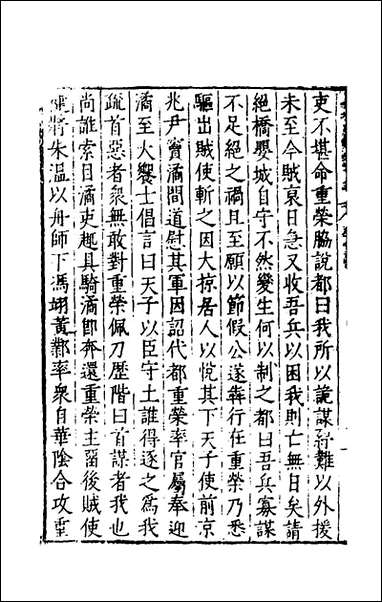 吏不堪命重榮脇說都曰我所以詭謀紓難以外援
未至今賊裒日急又收吾兵以困我則亡無日矣請
絕橋嬰城自守不然變生何以制之都曰吾兵寡謀
不足絕之禍且至願以節假公遂犇行在重榮乃悉
驅出賊使斬之因大掠居人以悅其下天子使前京
兆尹竇潏間道慰其軍因詔代都重榮率官屬奉迎
潏至大饗士倡言曰天子以臣守土誰得逐之爲我
疏首惡者衆無敢對重榮佩刀歷階曰首謀者我也
尚誰索目潏吏趣具騎潏卽奔還重榮主畱後賊使
健將朱温以舟師下馮翊黃鄴率衆自華陰合攻重